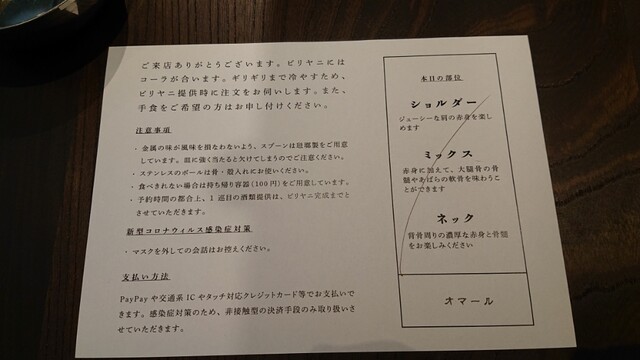 ご来店ありがとうございます。ビリヤニには
コーラが合います。ギリギリまで冷やすため、
ビリヤニ提供時に注文をお伺いします。また、
手食をご希望の方はお申し付けください。
注意事項
・金属の味が風味を損なわないよう、スプーンは琺瑯製をご用意
しています。皿に強く当たると欠けてしまうのでご注意ください。
・ステンレスのボールは骨・殻入れにお使いください。
・食べきれない場合は持ち帰り容器(100円)をご用意しています。
・予約時間の都合上、1巡目の酒類提供は、ビリヤニ完成までと
させていただきます。
新型コロナウィルス感染症対策
・マスクを外しての会話はお控えください。
支払い方法
PayPayや交通系ICやタッチ対応クレジットカード等でお支払いで
きます。感染症対策のため、非接触型の決済手段のみ取り扱いさ
せていただきます。
本日の部位
ショルダー
ジューシーな肩の赤身を楽し
めます
ミックス
赤身に加えて、大腿骨の骨
髄やあばらの軟骨を味わうこ
とができます
ネック
背骨周りの濃厚な赤身と骨髄
をお楽しみください
オマール